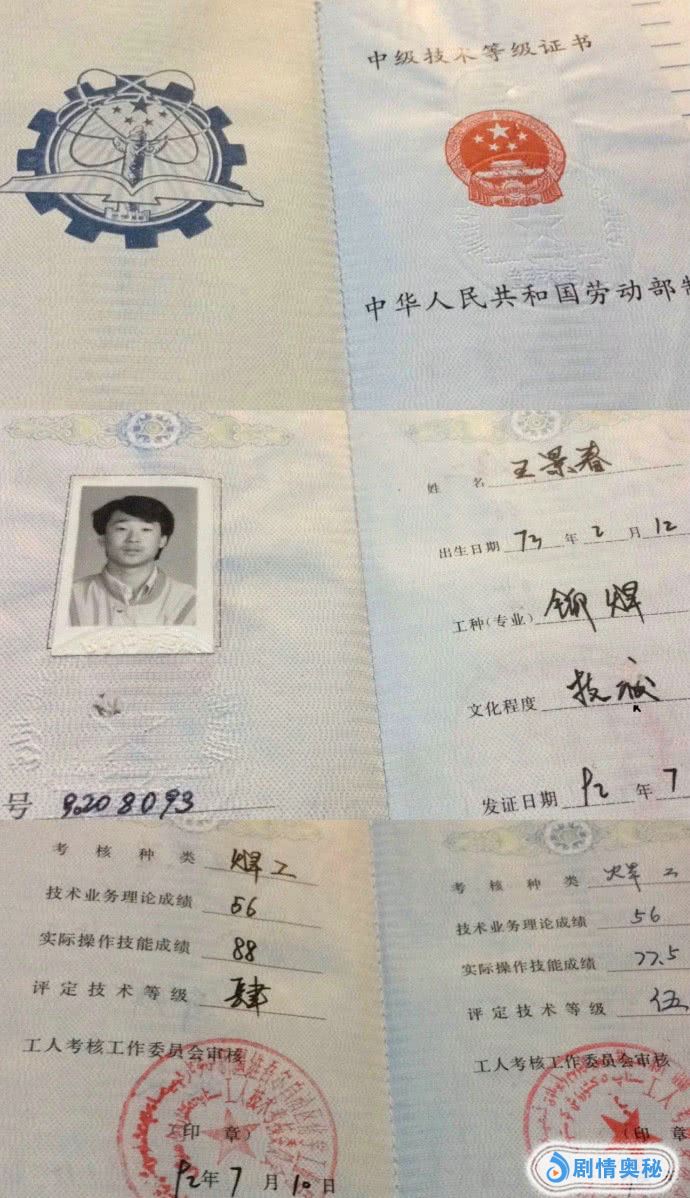 中级技术等级证书
中华人民共和国劳动部制
号 9208093
姓 名 王景春
出生日期 73 年 2 月 12
工种(专业) 铆焊
文化程度 技校
发证日期 92 年 7
考 核 种 类 焊工
技术业务理论成绩 56
实际操作技能成绩 88
评定技术等级 肆
工人考核工作委员会审核
(印 章)
92年 7 月 10 日
考 核 种 类 焊工
技术业务理论成绩 56
实际操作技能成绩 77.5
评定技术等级 伍
工人考核工作委员会审核
(印 章)
剧情奥秘